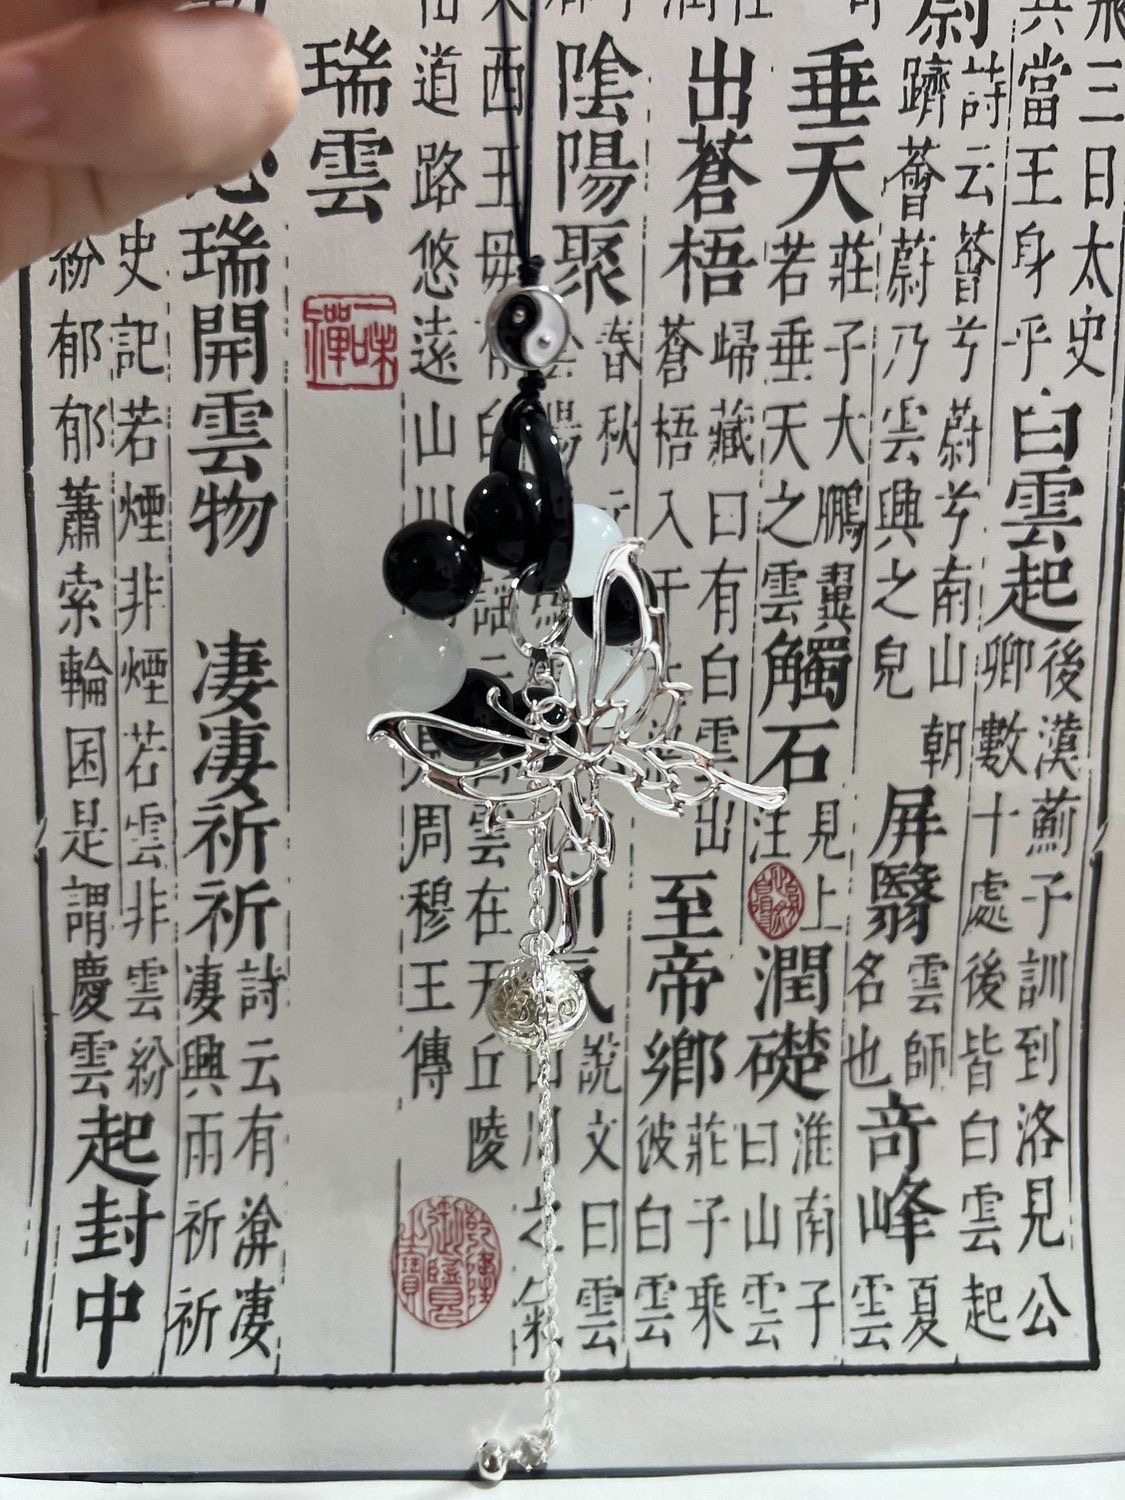 飛三日太史
兵當王身乎
白雲起
後漢薊子訓到洛見公
卿數十處後皆白雲起
蔚
詩云薈兮蔚兮南山朝
隮薈蔚乃雲興之皃
屏翳
雲師
名也
奇峰
夏
雲
垂天
莊子大鵬翼
若垂天之雲
觸石
見上
注
潤礎
淮南子
曰山雲
出蒼梧
歸藏曰有白雲出
蒼梧入于
至帝鄉
莊子乘
彼白雲
陰陽聚
春秋元
川氣
說文曰雲
山川之氣
西王母
雲在天丘陵
道路悠遠山川
周穆王傳
乾隆御覽之寶
瑞雲
一味禪
瑞開雲物
凄凄祈祈
詩云有渰凄
凄興雨祈祈
史記若煙非煙若雲非雲紛
紛郁郁蕭索輪囷是謂慶雲
起封中